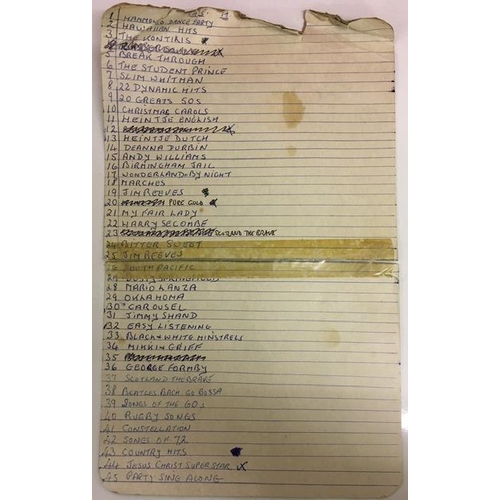 1 HAMMOND DANCE PARTY
2 HAWAIIAN HITS
3 THE KONTIKIS
4
5 BREAK THROUGH
6 THE STUDENT PRINCE
7 SLIM WHITMAN
8 22 DYNAMIC HITS
9 20 GREATS 50S
10 CHRISTMAS CAROLS
11 HEINTJE ENGLISH
12
13 HEINTJE DUTCH
14 DEANNA DURBIN
15 ANDY WILLIAMS
16 BIRMINGHAM JAIL
17 WONDERLAND BY NIGHT
18 MARCHES
19 JIM REEVES
20 PURE GOLD
21 MY FAIR LADY
22 HARRY SECOMBE
23 SCOTLAND THE BRAVE
24 BITTER SWEET
25 JIM REEVES
26 SOUTH PACIFIC
27 DUSTY SPRINGFIELD
28 MARIO LANZA
29 OKLAHOMA
30 CAROUSEL
31 JIMMY SHAND
32 EASY LISTENING
33 BLACK & WHITE MINSTRELS
34 MIKKI & GRIFF
35
36 GEORGE FORMBY
37 SCOTLAND THE BRAVE
38 BEATLES BACH GO BOSSA
39 SONGS OF THE 60s
40 RUGBY SONGS
41 CONSTELLATION
42 SONGS OF 72
43 COUNTRY HITS
44 JESUS CHRIST SUPERSTAR X
45 PARTY SING ALONG